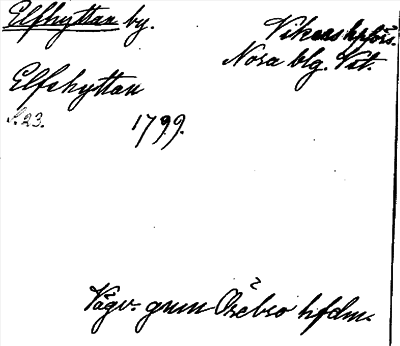 Elfhyttan by.
Vikers kpförs.
Nora blg. Vst.
Elfshyttan
S. 23.
1799.
Vägv. gnm Örebro hfdm.